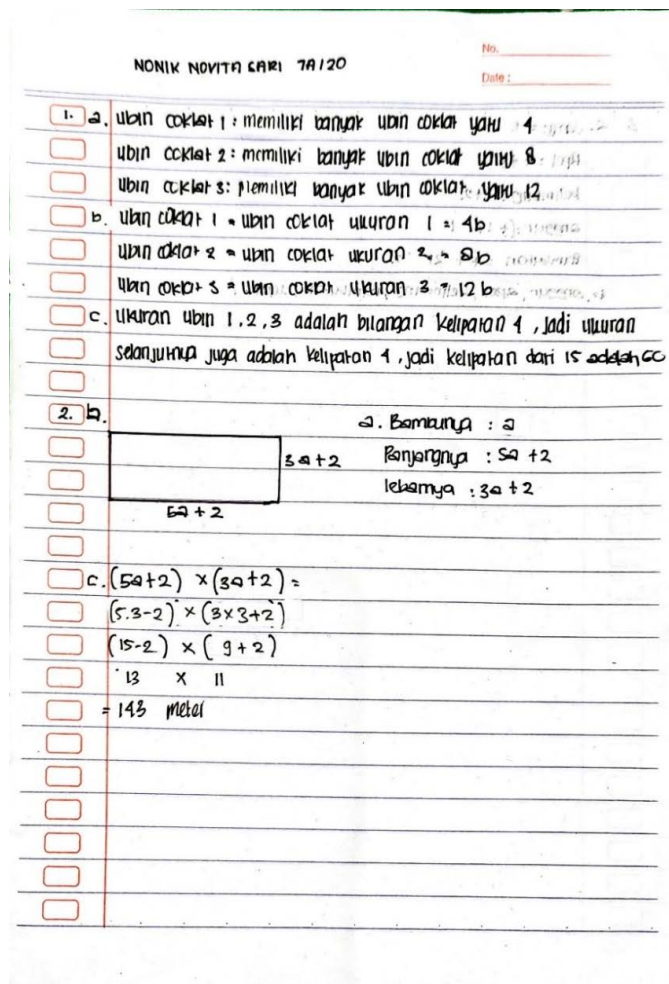 No.
NONIK NOVITA SARI 7A/20
Date :
1. a. ubin coklat 1 : memiliki banyak ubin coklat yaitu 4
ubin coklat 2 : memiliki banyak ubin coklat yaitu 8
ubin coklat 3 : memiliki banyak ubin coklat yaitu 12
b. ubin coklat 1 = ubin coklat ukuran 1 = 4b
ubin coklat 2 = ubin coklat ukuran 2 = 8b
ubin coklat 3 = ubin coklat ukuran 3 = 12b
c. ukuran ubin 1,2,3 adalah bilangan kelipatan 4, jadi ukuran
selanjutnya juga adalah kelipatan 4, jadi kelipatan dari 15 adalah 60
2. b.
a. Bambunya : a
3a+2 Panjangnya : 5a +2
lebarnya : 3a +2
5a + 2
c. (5a+2) × (3a+2) =
(5.3-2) × (3×3+2)
(15-2) × (9+2)
13 × 11
= 143 meter